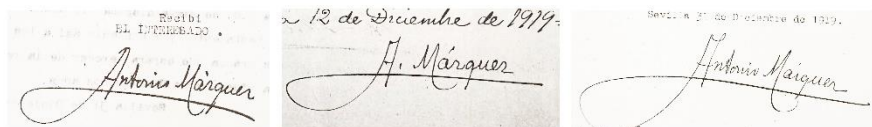 Recibi
EL INTERESADO.
Antonio Márquez
a 12 de Diciembre de 1919=
A. Márquez
Sevilla 31 de Diciembre de 1919.
Antonio Márquez